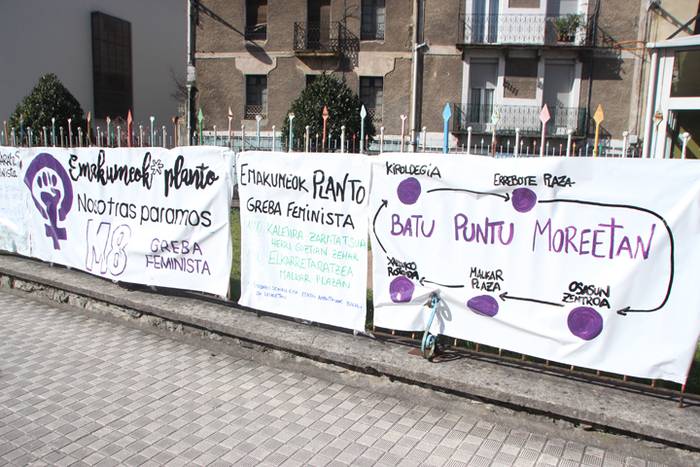 Emakumeok planto
Nosotras paramos
M8 GREBA
FEMINISTA
EMAKUMEOK PLANTO
GREBA FEMINISTA
KALEJIRA ZARATATSUA
HERRI GUZTIAN ZEHAR
ELKARRETARATZEA
MALKAR PLAZAN
KIROLDEGIA
ERREBOTE PLAZA
BATU PUNTU MOREETAN
MALKAR
PLAZA
OSASUN
ZENTROA